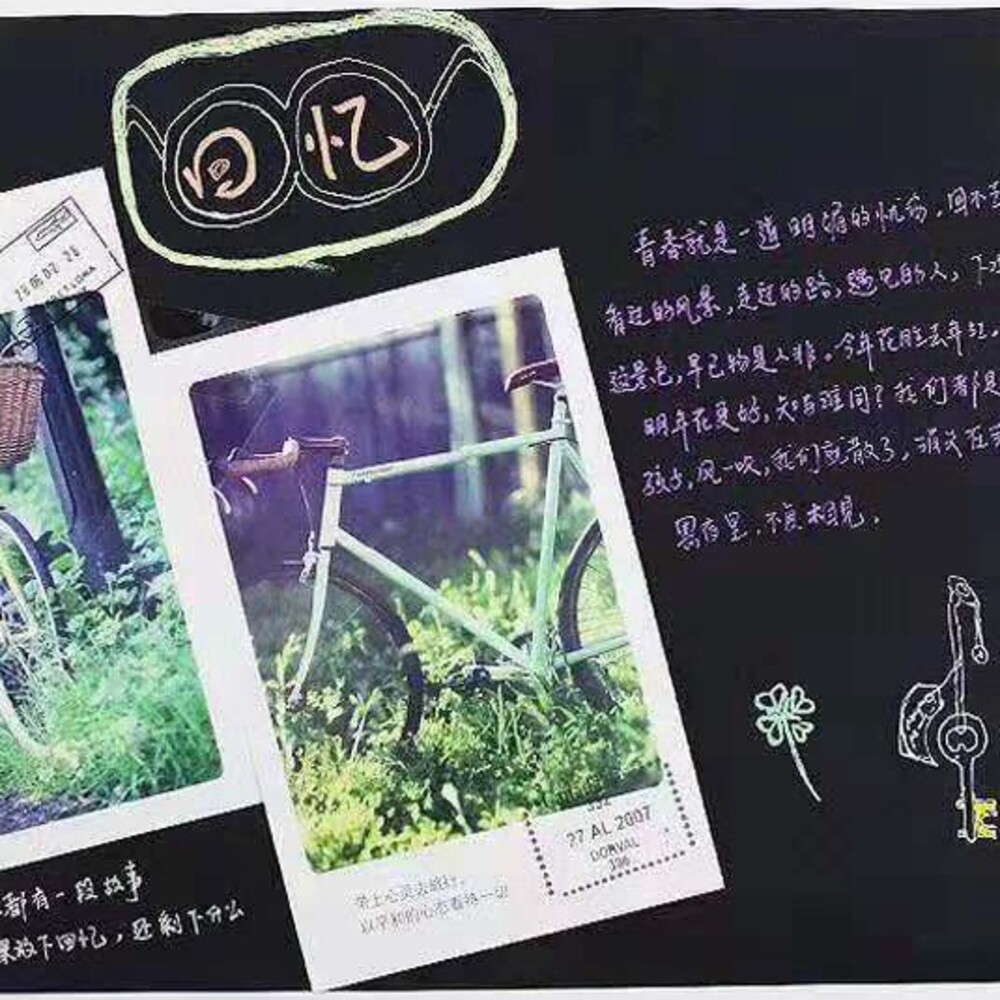 回忆
青春就是一道明媚的忧伤，回不去
看过的风景，走过的路，遇见的人，下次
这景色，早已物是人非。今年花胜去年红，
明年花更好，知与谁同？我们都是
孩子，风一吹，我们就散了，消失在
黑夜里，不复相见。
28 06 02 28
27 AL 2007
DORVAL
带上心灵去旅行，
以平和的心态看待一切
都有一段故事
果放下回忆，还剩下什么